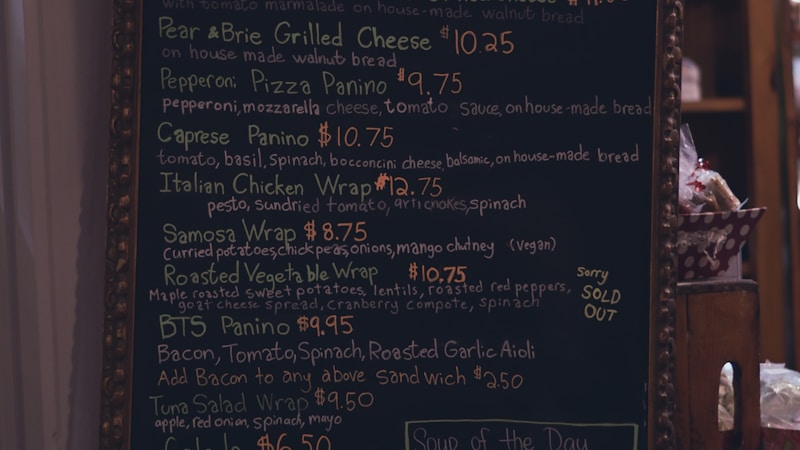 with tomato marmalade on house-made walnut bread
Pear & Brie Grilled Cheese $10.25
on house made walnut bread
Pepperoni Pizza Panino $9.75
pepperoni, mozzarella cheese, tomato sauce, on house-made bread
Caprese Panino $10.75
tomato, basil, spinach, bocconcini cheese, balsamic, on house-made bread
Italian Chicken Wrap $12.75
pesto, sundried tomato, artichokes, spinach
Samosa Wrap $8.75
Curried potatoes, chick peas, onions, mango chutney (vegan)
Roasted Vegetable Wrap $10.75
Maple roasted sweet potatoes, lentils, roasted red peppers,
goat cheese spread, cranberry compote, spinach
Sorry
SOLD
OUT
BTS Panino $9.95
Bacon, Tomato, Spinach, Roasted Garlic Aioli
Add Bacon to any above Sandwich $2.50
Tuna Salad Wrap $9.50
apple, red onion, spinach, mayo
$6.50
Soup of the Day